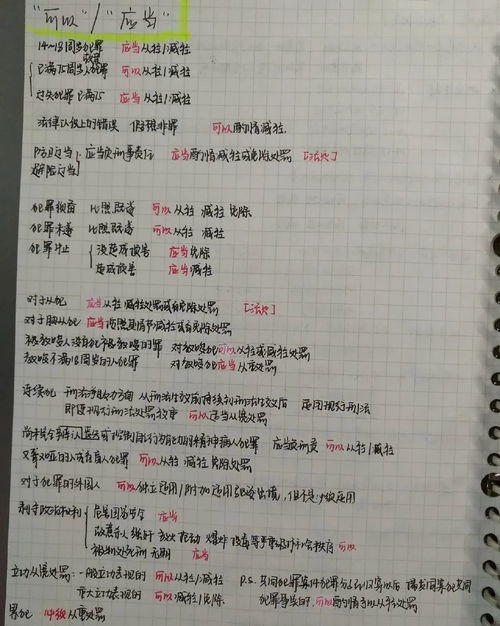 "可以"/"应当"
14~18周岁犯罪 应当从轻/减轻
已满75周岁人犯罪 可以从轻/减轻
过失犯罪已满75 应当从轻/减轻
法律认识上的错误 假想非罪 可以酌情减轻.
防卫过当 应当负刑事责任 应当酌情减轻或免除处罚 [法定]
避险过当
犯罪预备 比照既遂 可以从轻 减轻 免除
犯罪未遂 比照既遂 可以从轻 减轻
犯罪中止 没造成损害 应当免除
造成损害 应当减轻
对于从犯 应当从轻 减轻处罚或者免除处罚 [法定]
对于胁从犯 应当按照其情节减轻或者免除处罚
被教唆人没有犯被教唆的罪 对教唆犯可以从轻或减轻处罚
教唆不满18周岁的人犯罪 对教唆犯应当从重处罚
连续犯 刑法 从刑法生效前持续到刑法生效后 适用现行刑法
可以适当从宽处罚
尚未完全丧失辨认或控制自己行为能力的精神病人犯罪 应当负刑责 可以从轻/减轻
又聋又哑的人或者盲人犯罪 可以从轻 减轻 免除处罚
对于犯罪的外国人 可以独立适用/附加适用驱逐出境,但不是必须适用
剥夺政治权利 危害国家安全 应当
故意杀人 强奸 放火 爆炸 投毒等严重破坏社会秩序 可以
被判处死刑 无期 应当
立功从宽处罚:一般立功表现的 可以从轻/减轻 P.S. 共同犯罪案件犯罪分子到案以后 揭发同案犯共同
重大立功表现的 可以减轻/免除 犯罪事实的,可以酌情予以从轻处罚
累犯 应当从重处罚